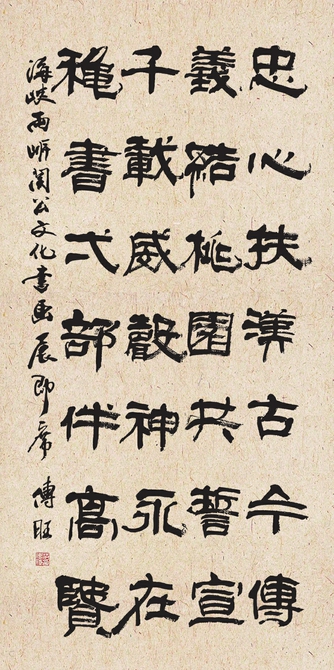 忠心扶漢古今傳
義結桃園共誓宣
千載威聲神永在
穐書弌部伴高賢
海峡两岸関公文化書画展即席 傅旺